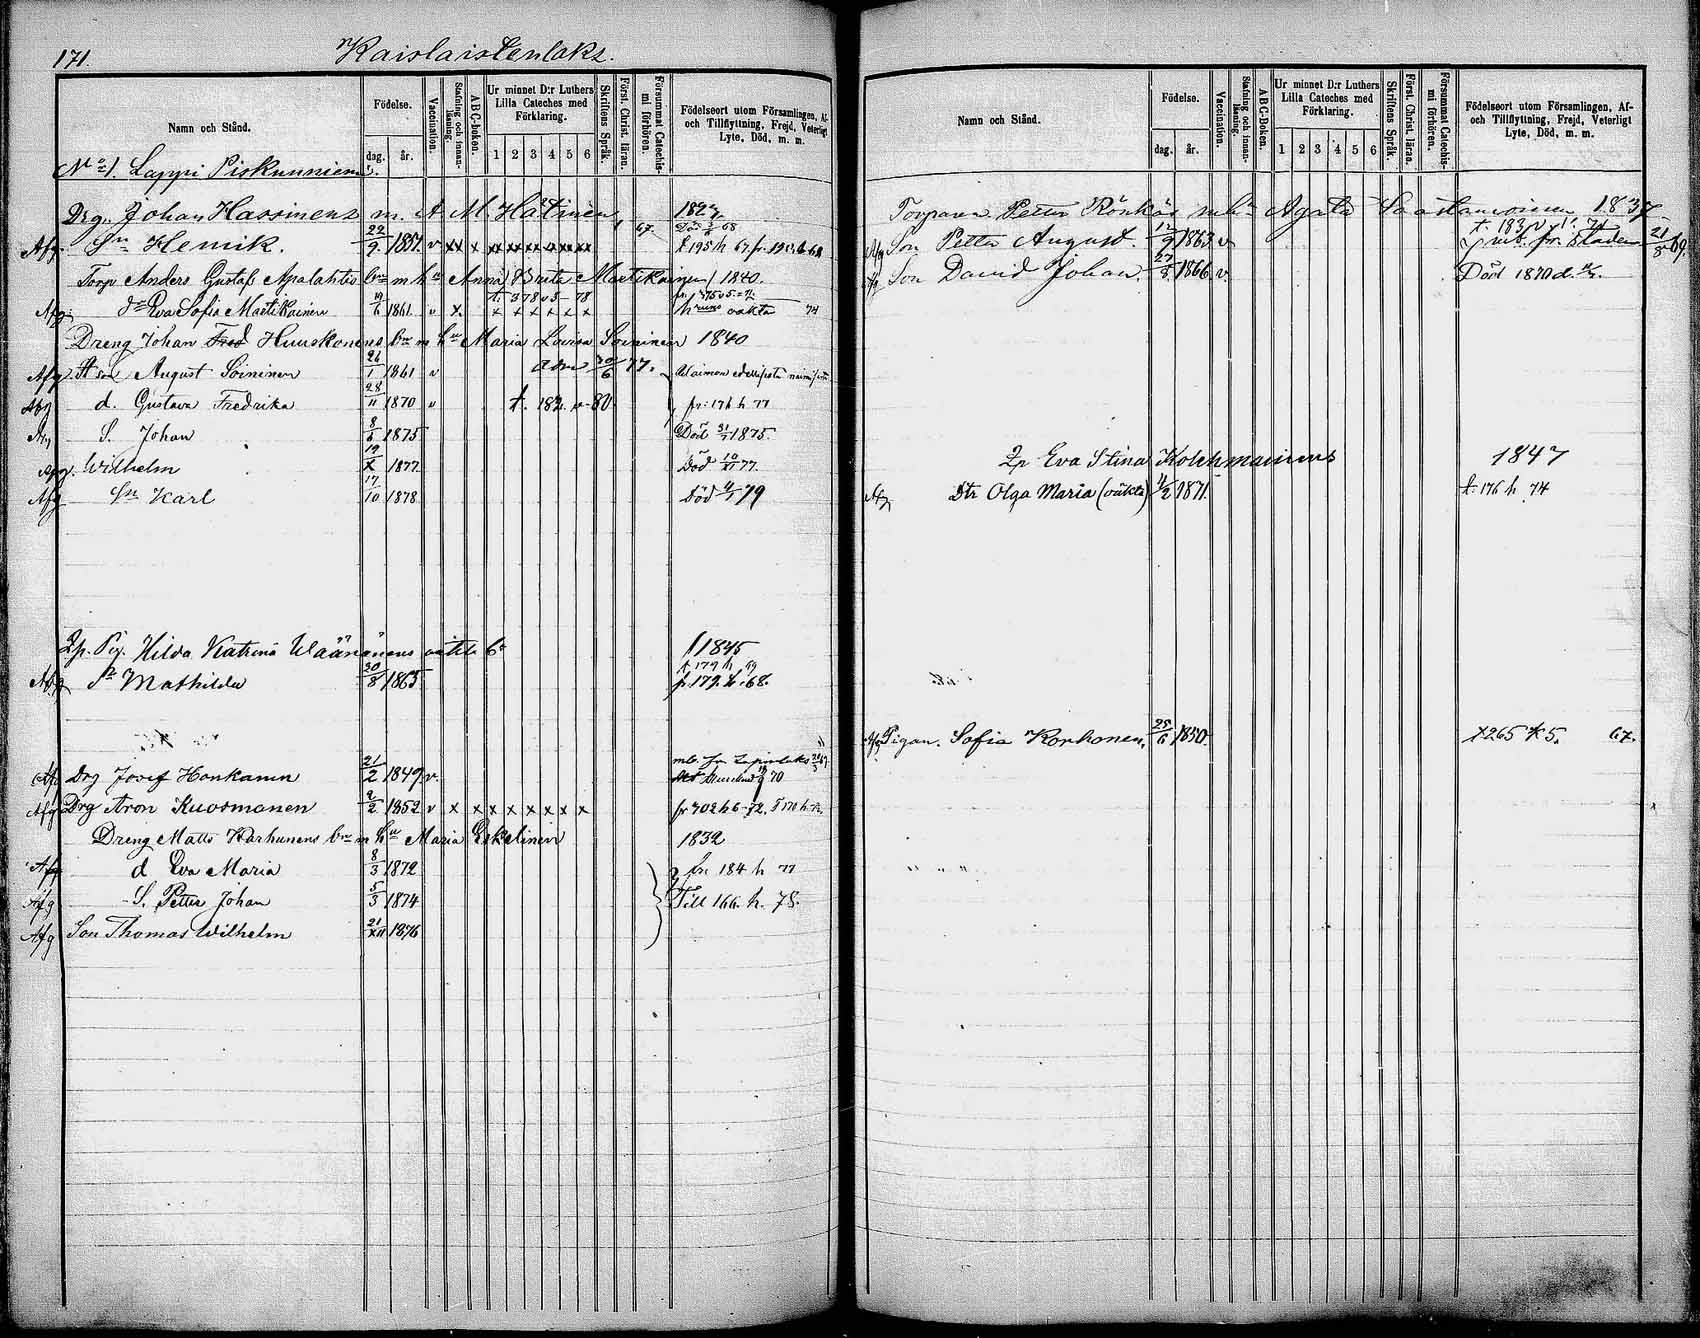 171.
Kaislaistenlaks.
Namn och Stånd.
Födelse.
dag. år.
Vaccination.
Stafning och innanläsning.
A B C-boken.
Ur minnet D:r Luthers Lilla Cateches med Förklaring.
1 2 3 4 5 6
Skriftens Språk.
Först. Christ. läran.
Försummat Catechismi förhören.
Födelseort utom Församlingen, Af- och Tillflyttning, Frejd, Veterligt Lyte, Död, m. m.
No 1. Lappi Piskunniemi
Drg. Johan Hassinens m. A M. Hätinen 182
Afg. Sn Henrik. 22/9 1851 v xx x xx xx xx xx 67 t. 195 h 67
Torp Anders Gustaf Apalahtis bn m hu Anna Brita Martikainen 1840.
t. 378 v 5 - 78
Afg. dr Eva Sofia Martikainen 19/6 1861 v x x x x x x x oäkta 74
Dreng Johan Fred Huuskonens bn m hu Maria Lovisa Soininen 1840
Afg. August Soininen 26/1 1861 v 30/6 77.
Afg d. Gustava Fredrika 28/11 1870 v t. 182 v 80. fr: 176 h 77
Afg S. Johan 8/6 1875 Död 31/7 1875.
Afg. Wilhelm 19/X 1877 Död 10/XI 77.
Afg Sn Karl 17/10 1878 Död 79
Hilda Katrina Wäänänens oäkta 1845
t 179 h 69
Afg Mathilda 20/8 1865 fr. 179. h. 68.
Drg Josef Honkanen 21/2 1849 v. 70
Afg Drg Aron Kuosmanen 2/2 1852 v x x x x x x x
Dreng Matts Karhunens bn m hu Maria Eskelinen 1832
Afg d Eva Maria 8/3 1872 fr. 184 h 77
Afg S. Petter Johan 5/3 1874 Till 166. h. 78.
Afg Son Thomas Wilhelm 21/XII 1876
Namn och Stånd.
Födelse.
dag. år.
Vaccination.
Stafning och innanläsning.
A B C-Boken.
Ur minnet D:r Luthers Lilla Cateches med Förklaring.
1 2 3 4 5 6
Skriftens Språk.
Först. Christ. läran.
Försummat Catechismi förhören.
Födelseort utom Församlingen, Af- och Tillflyttning, Frejd, Veterligt Lyte, Död, m. m.
Torparen Petter Rönkäs m hu Agata Saastamoinen 1837
Afg Son Petter August. 12/9 1863 v mb. fr. staden 21/8 69.
Afg Son David Johan. 27/3 1866 v. Död 1870 d.
Eva Stina Kolehmainens 1847
Afg Dtr Olga Maria (oäkta) 11/2 1871. t: 176 h 74
Afg Pigan. Sofia Korhonen. 25/6 1850. t 265 K 5. 67.